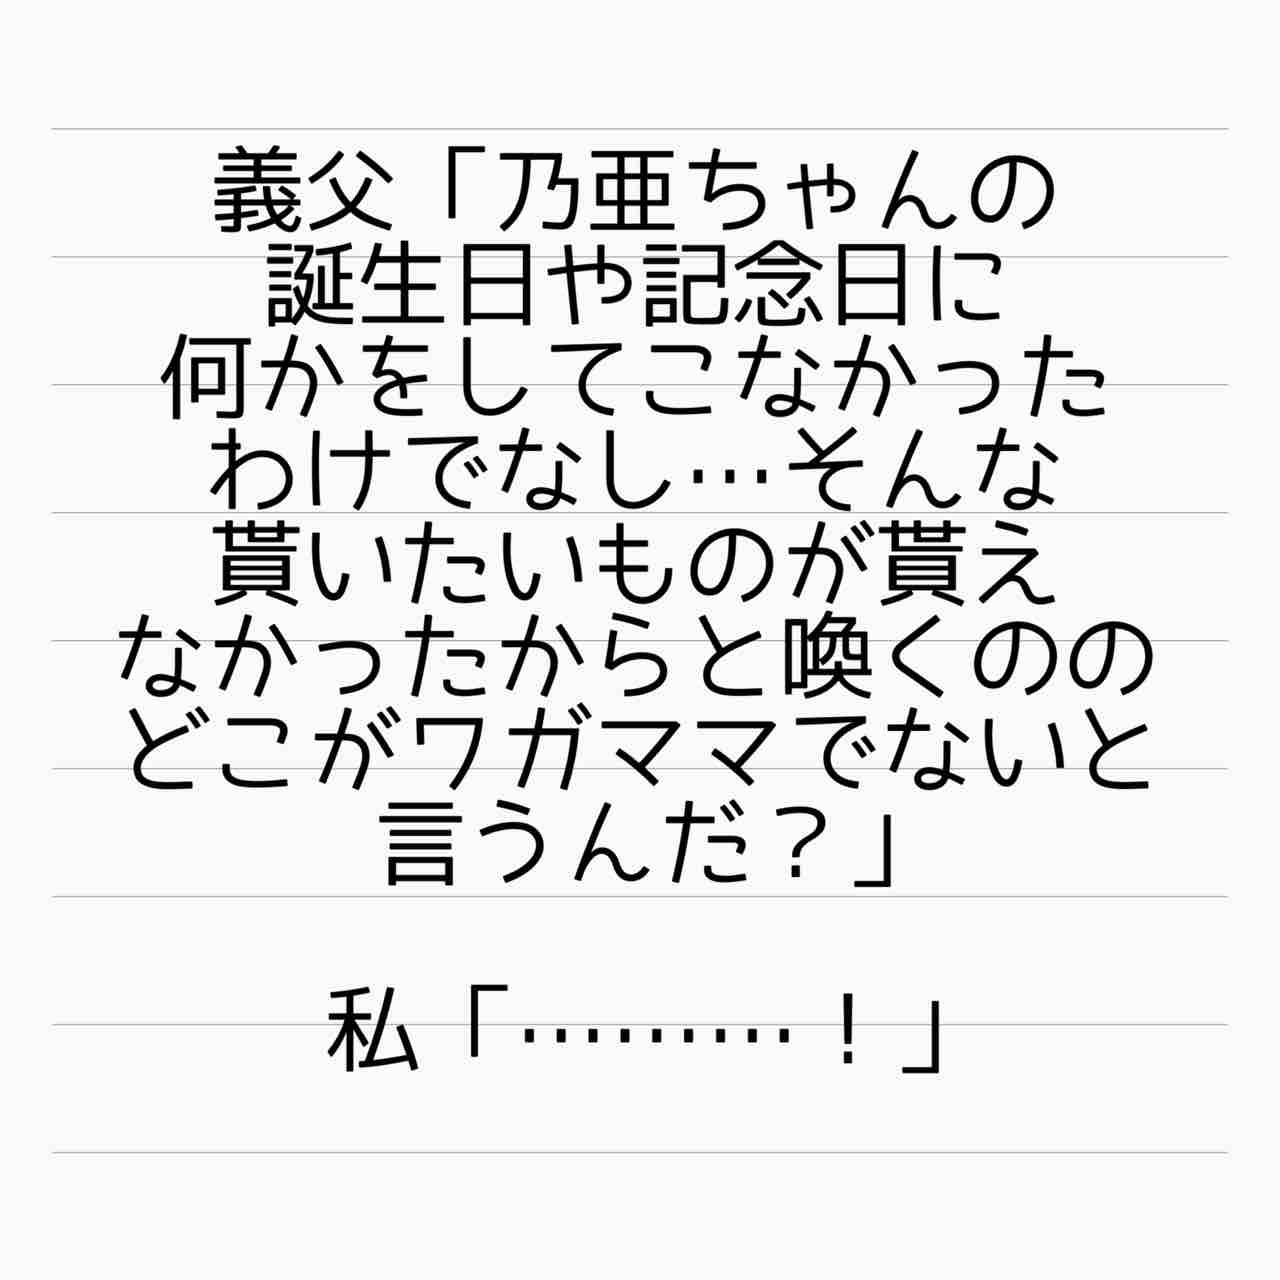 義父「乃亜ちゃんの
誕生日や記念日に
何かをしてこなかった
わけでなし…そんな
貰いたいものが貰え
なかったからと喚くのの
どこがワガママでないと
言うんだ？」
私「………！」